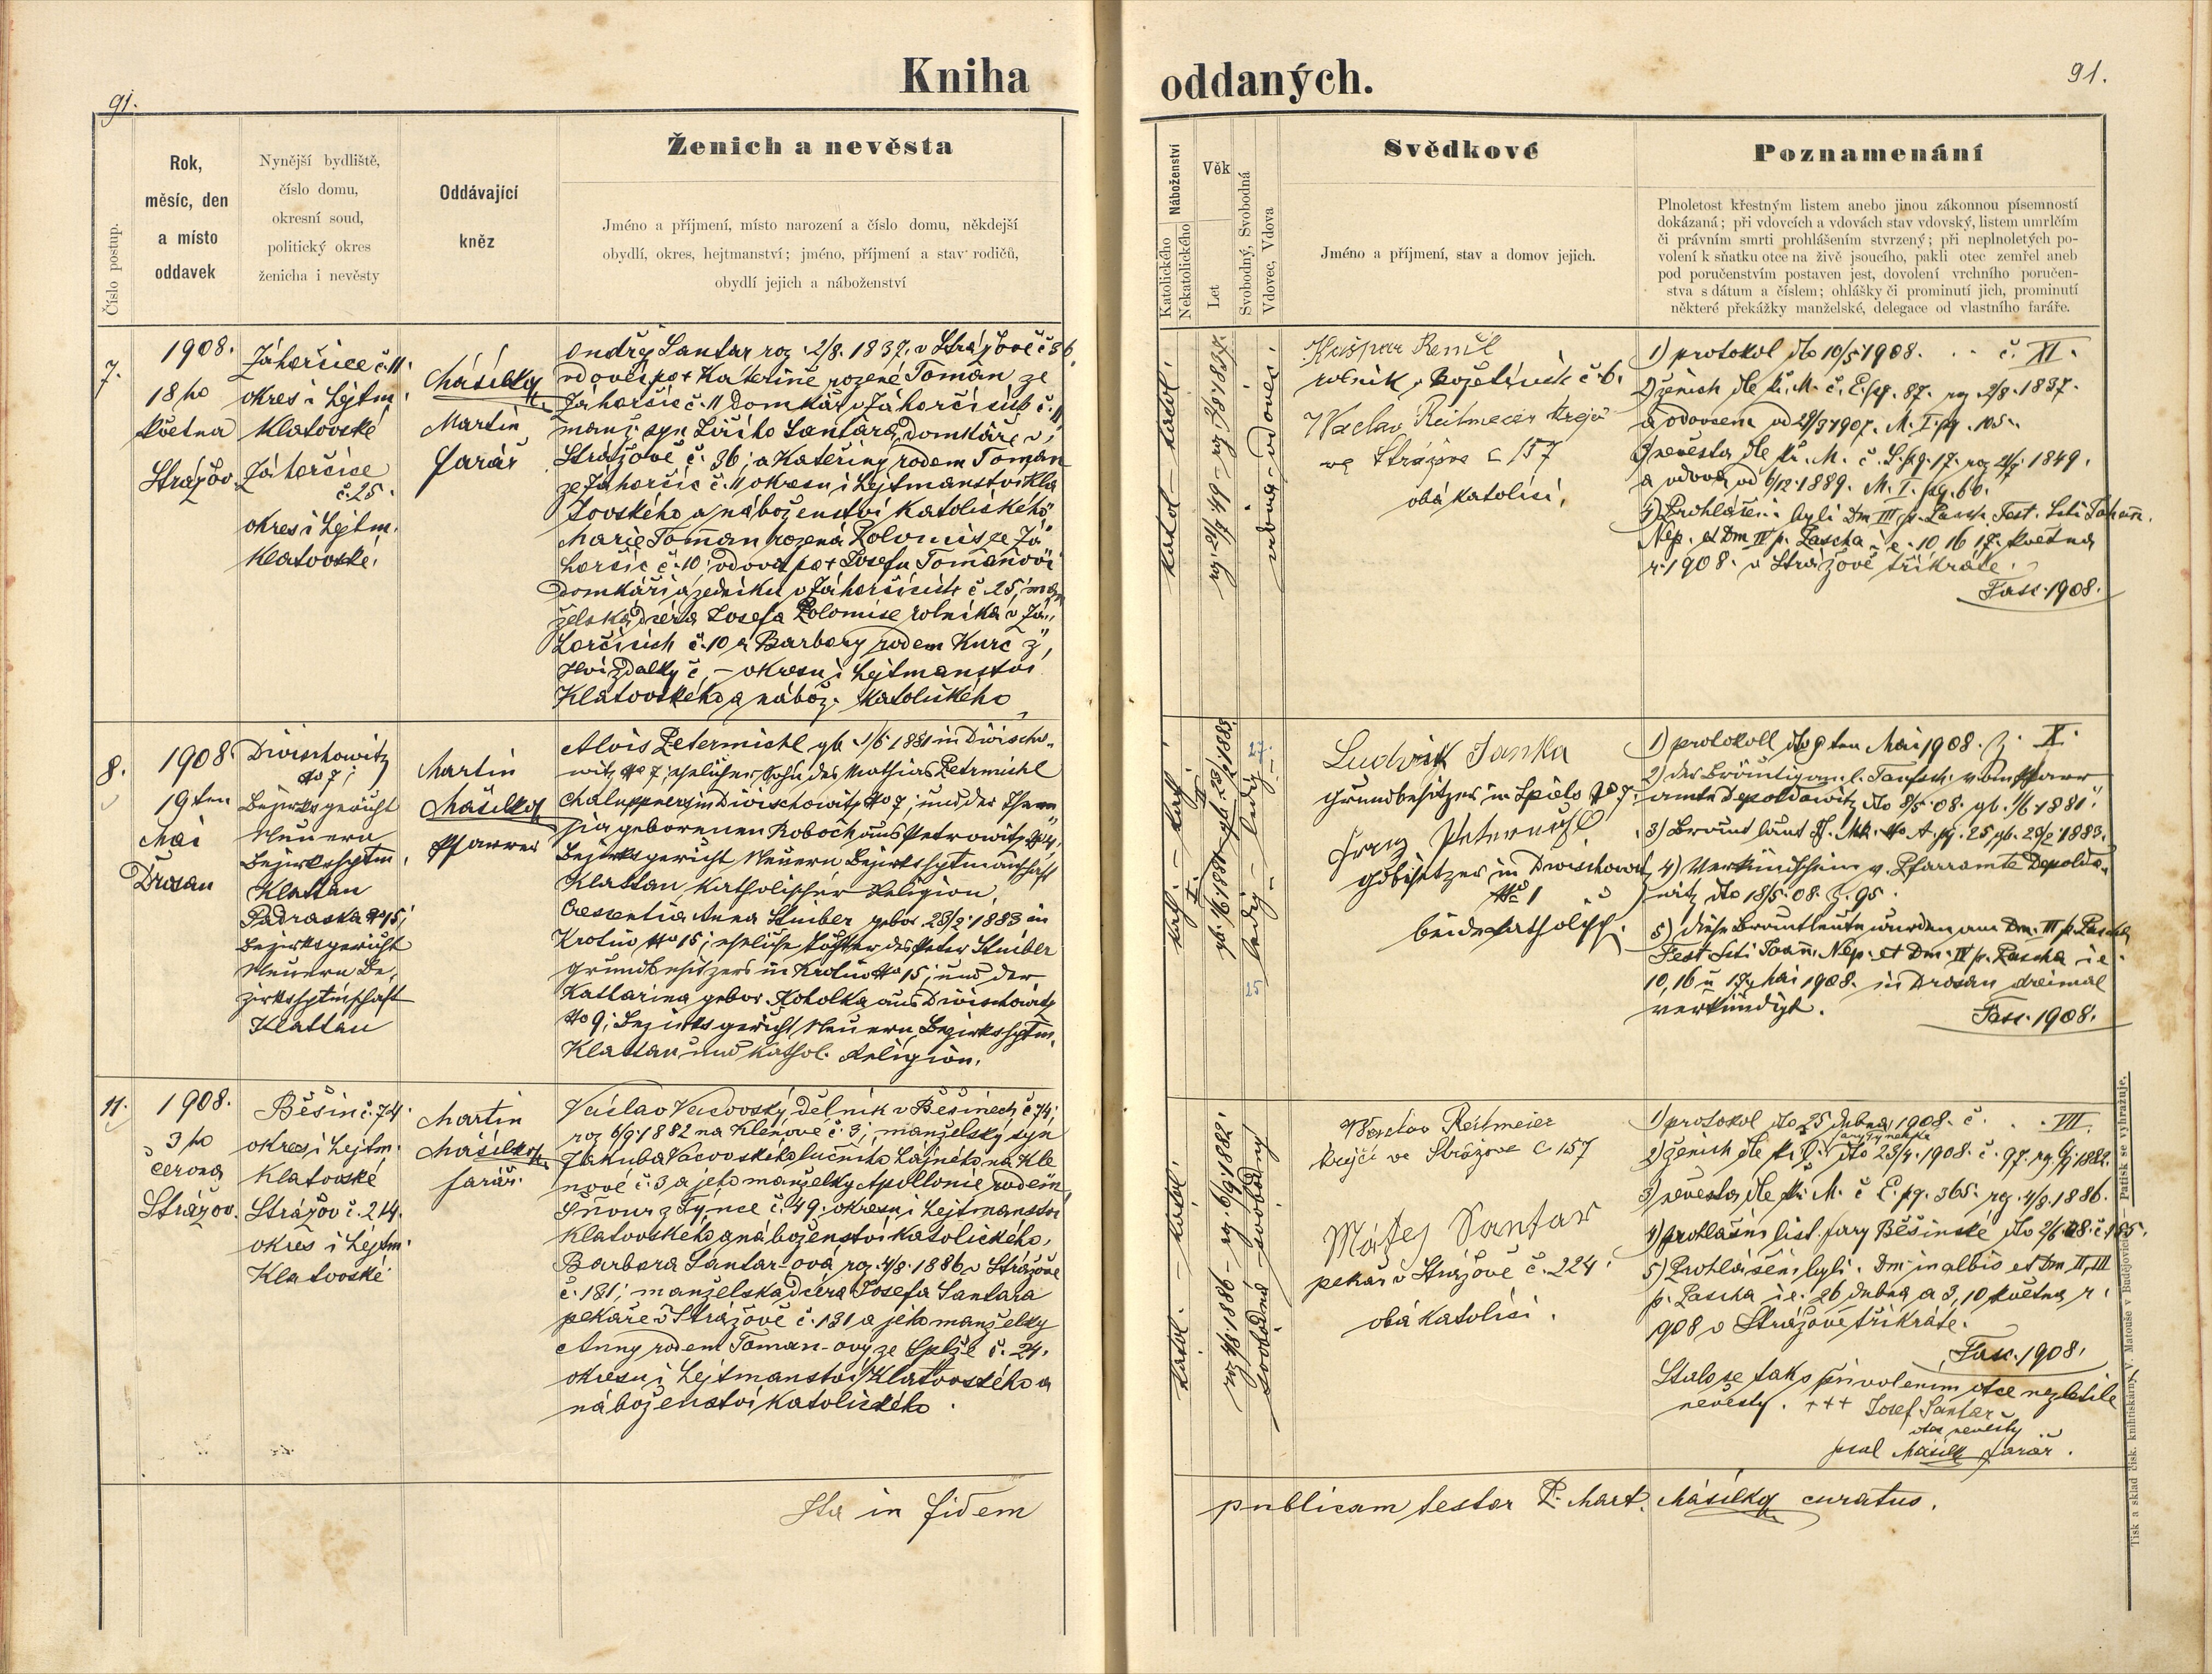 Kniha
oddaných.
91.
91.
Číslo postup.
Rok,
měsíc, den
a místo
oddavek
Nynější bydliště,
číslo domu,
okresní soud,
politický okres
ženicha i nevěsty
Oddávající
kněz
Ženich a nevěsta
Jméno a příjmení, místo narození a číslo domu, někdejší
obydlí, okres, hejtmanství; jméno, příjmení a stav rodičů,
obydlí jejich a náboženství
Náboženství
Katolického
Nekatolického
Věk
Let
Svobodný, Svobodná
Vdovec, Vdova
Svědkové
Jméno a příjmení, stav a domov jejich.
Poznamenání
Plnoletost křestným listem anebo jinou zákonnou písemností
dokázaná; při vdovcích a vdovách stav vdovský, listem umrlčím
či právním smrti prohlášením stvrzený; při neplnoletých po-
volení k sňatku otce na živě jsoucího, pakli otec zemřel aneb
pod poručenstvím postaven jest, dovolení vrchního poručen-
stva s dátum a číslem; ohlášky či prominutí jich, prominutí
některé překážky manželské, delegace od vlastního faráře.
7.
1908.
18ho
května
Strážov
Záhorčice č. 11.
okres i hejtm.
Klatovské
Záhorčice
č. 25.
okres i hejtm.
Klatovské.
Másilko
Martin
farář
Ondřej Šantar roz. 2/8. 1837. v Strážově č 36
vdovec po + Kateřině rozené Toman ze
Záhorčic č. 11 Domkář v Záhorčicích č. 11
manž. syn Jiřího Šantara, domkáře v
Strážově č. 36; a Kateřiny rodem Toman
ze Záhorčic č. 11 okresu i hejtmanství Kla
tovského a náboženství Katolického
Marie Toman rozená Kolomis ze Zá"
horčic č. 10; vdova po + Josefu Tomanovi
domkáři a zedníku v Záhorčicích č. 25; man
želská dcera Josefa Kolomise rolníka v Zá"
horčicích č. 10 a Barbory rodem Kurč z"
Hvizdalky č. – okresu i hejtmanství
Klatovského a nábož. Katolického
katol. – katol.
vdova – vdovec.
Kašpar
rolník v č. 6.
Václav Reitmeier Krejčí
ve Strážově č 157
obá katolíci.
1) protokol dto 10/5 1908. . . č. XI.
2) ženich dle kř. M. č. E. pg. 87. roz. 2/8. 1837.
a vdovcem od 29/3 1907. M. I. pg. 105.
3) nevěsta dle kř. M. č. pg. 17. roz. 1849.
a vdova od 6/12. 1889. M. I. pg. 66.
4) Prohlášeni byli Dm III p. Pasch. Fest. Sti Johann.
Nep. et Dm IV p. Pascha i e. 10 16 17. května
r. 1908. v Strážově tříkráte.
Fasc. 1908.
8.
1908.
19ten
Mai
Drosau
Diwischowitz
No 7;
Bezirksgericht
Neuern
Bezirkshptm.
Klattau
Padraska No 15;
Bezirksgericht
Neuern Be-
zirkshptmschaft
Klattau
Martin
Másilko
Pfarrer
Alois Petermichl gb. 1/6 1881 in Diwischo-
witz No 7; ehelicher Sohn des Mathias Petrmichl
Chaluppners in Diwischowitz No 7; und der There"
sia geborenen Roboch aus Petrowitz No 4,
Bezirksgericht Neuern Bezirkshptmannschaft
Klattau Katholischer Religion.
Crescentia Anna Stuiber gebor. 23/2 1883 in
Krotiw No 15; eheliche Tochter des Peter Stuiber
Grundbesitzers in Krotiw No 15; und der
Katharina gebor. Kokolka aus Diwischowitz
No 9; Bezirksgericht Neuern Bezirkshptm.
Klattau und Kathol. Religion.
kath. – kath.
I. II
gb. 1/6 1881 – gb. 23/2 1883
ledig – ledig
27
25
Ludvik Janka
Grundbesitzer in No 7.
Franz Petermichl
Gdbesitzer in Diwischowitz
No 1
beide katholisch.
1) protokoll dto 9 ten Mai 1908. Z. X.
2) des Bräutigam l. Taufsch. vom Pfarr
amte Depoldowitz dto 8/5. 08. gb. 1/6. 1881.
3) Braut laut No A. pg. 25 gb. 23/2 1883.
4) Verkündschein v. Pfarramte Depoldo-
witz dto 18/5. 08. Z. 95.
5) diese Brautleute wurden am Dm. III p. Pascha
Fest Sti Joann. Nep. et Dm. IV p. Pascha i e.
10, 16 u 17. Mai 1908. in Drosau dreimal
verkündigt.
Fasc. 1908.
11.
1908.
3ho
června
Strážov.
Běšin č. 74.
okres i hejtm.
Klatovské
Strážov č. 214.
okres i hejtm.
Klatovské
Martin
Másilko
farář.
Václav Vacovský, Dělník v Běšinech č 74;
roz 6/9. 1882 na Klenové č. 3; manželský syn
Jakuba Vacovského lučního hajného na Kle
nové č. 3 a jeho manželky Apollonie rodem
Šnour z Týnce č. 49. okresu i hejtmanství
Klatovského a náboženství katolického.
Barbora Šantar-ová roz. 4/8. 1886 v Strážově
č. 181; manželská dcera Josefa Šantara
pekaře v Strážově č. 181 a jeho manželky
Anny rodem Toman-ovy ze Splže č. 24.
okresu i hejtmanství Klatovského a
náboženství katolického.
katol. – katol.
roz. 4/8. 1886 – roz. 6/9 1882.
svobodná – svobodný
Václav Reitmeier
krejčí ve Strážově č 157
Matěj Šantar
pekař v Strážově č. 224.
obá katolíci.
1) protokol dto 25 dubna 1908. č. . . VIII.
2) ženich dle kř. l. dto 23/4. 1908. č. 97. roz. 6/9 1882.
3) nevěsta dle kř. M. č E. pg. 365. roz. 4/8. 1886.
4) prohlášní list fary Běšinské dto 2/6. 08. č. 185.
5) Prohlášeni byli. Dm in albis et Dm. II, III
p. Pascha i e. 26 dubna a 3, 10 května r.
1908 v Strážově tříkráte.
Fasc. 1908.
Stalo se tak s přivolením otce nezletilé
nevěsty. +++ Josef Šantar
otec nevěsty
psal Másilko farář.
Ita in fidem
publicam testor P. Mart. Másilko curatus.
Tisk a sklad čísk. knihtiskárny V. Matouše v Budějovicích. — Patisk se vyhražuje.